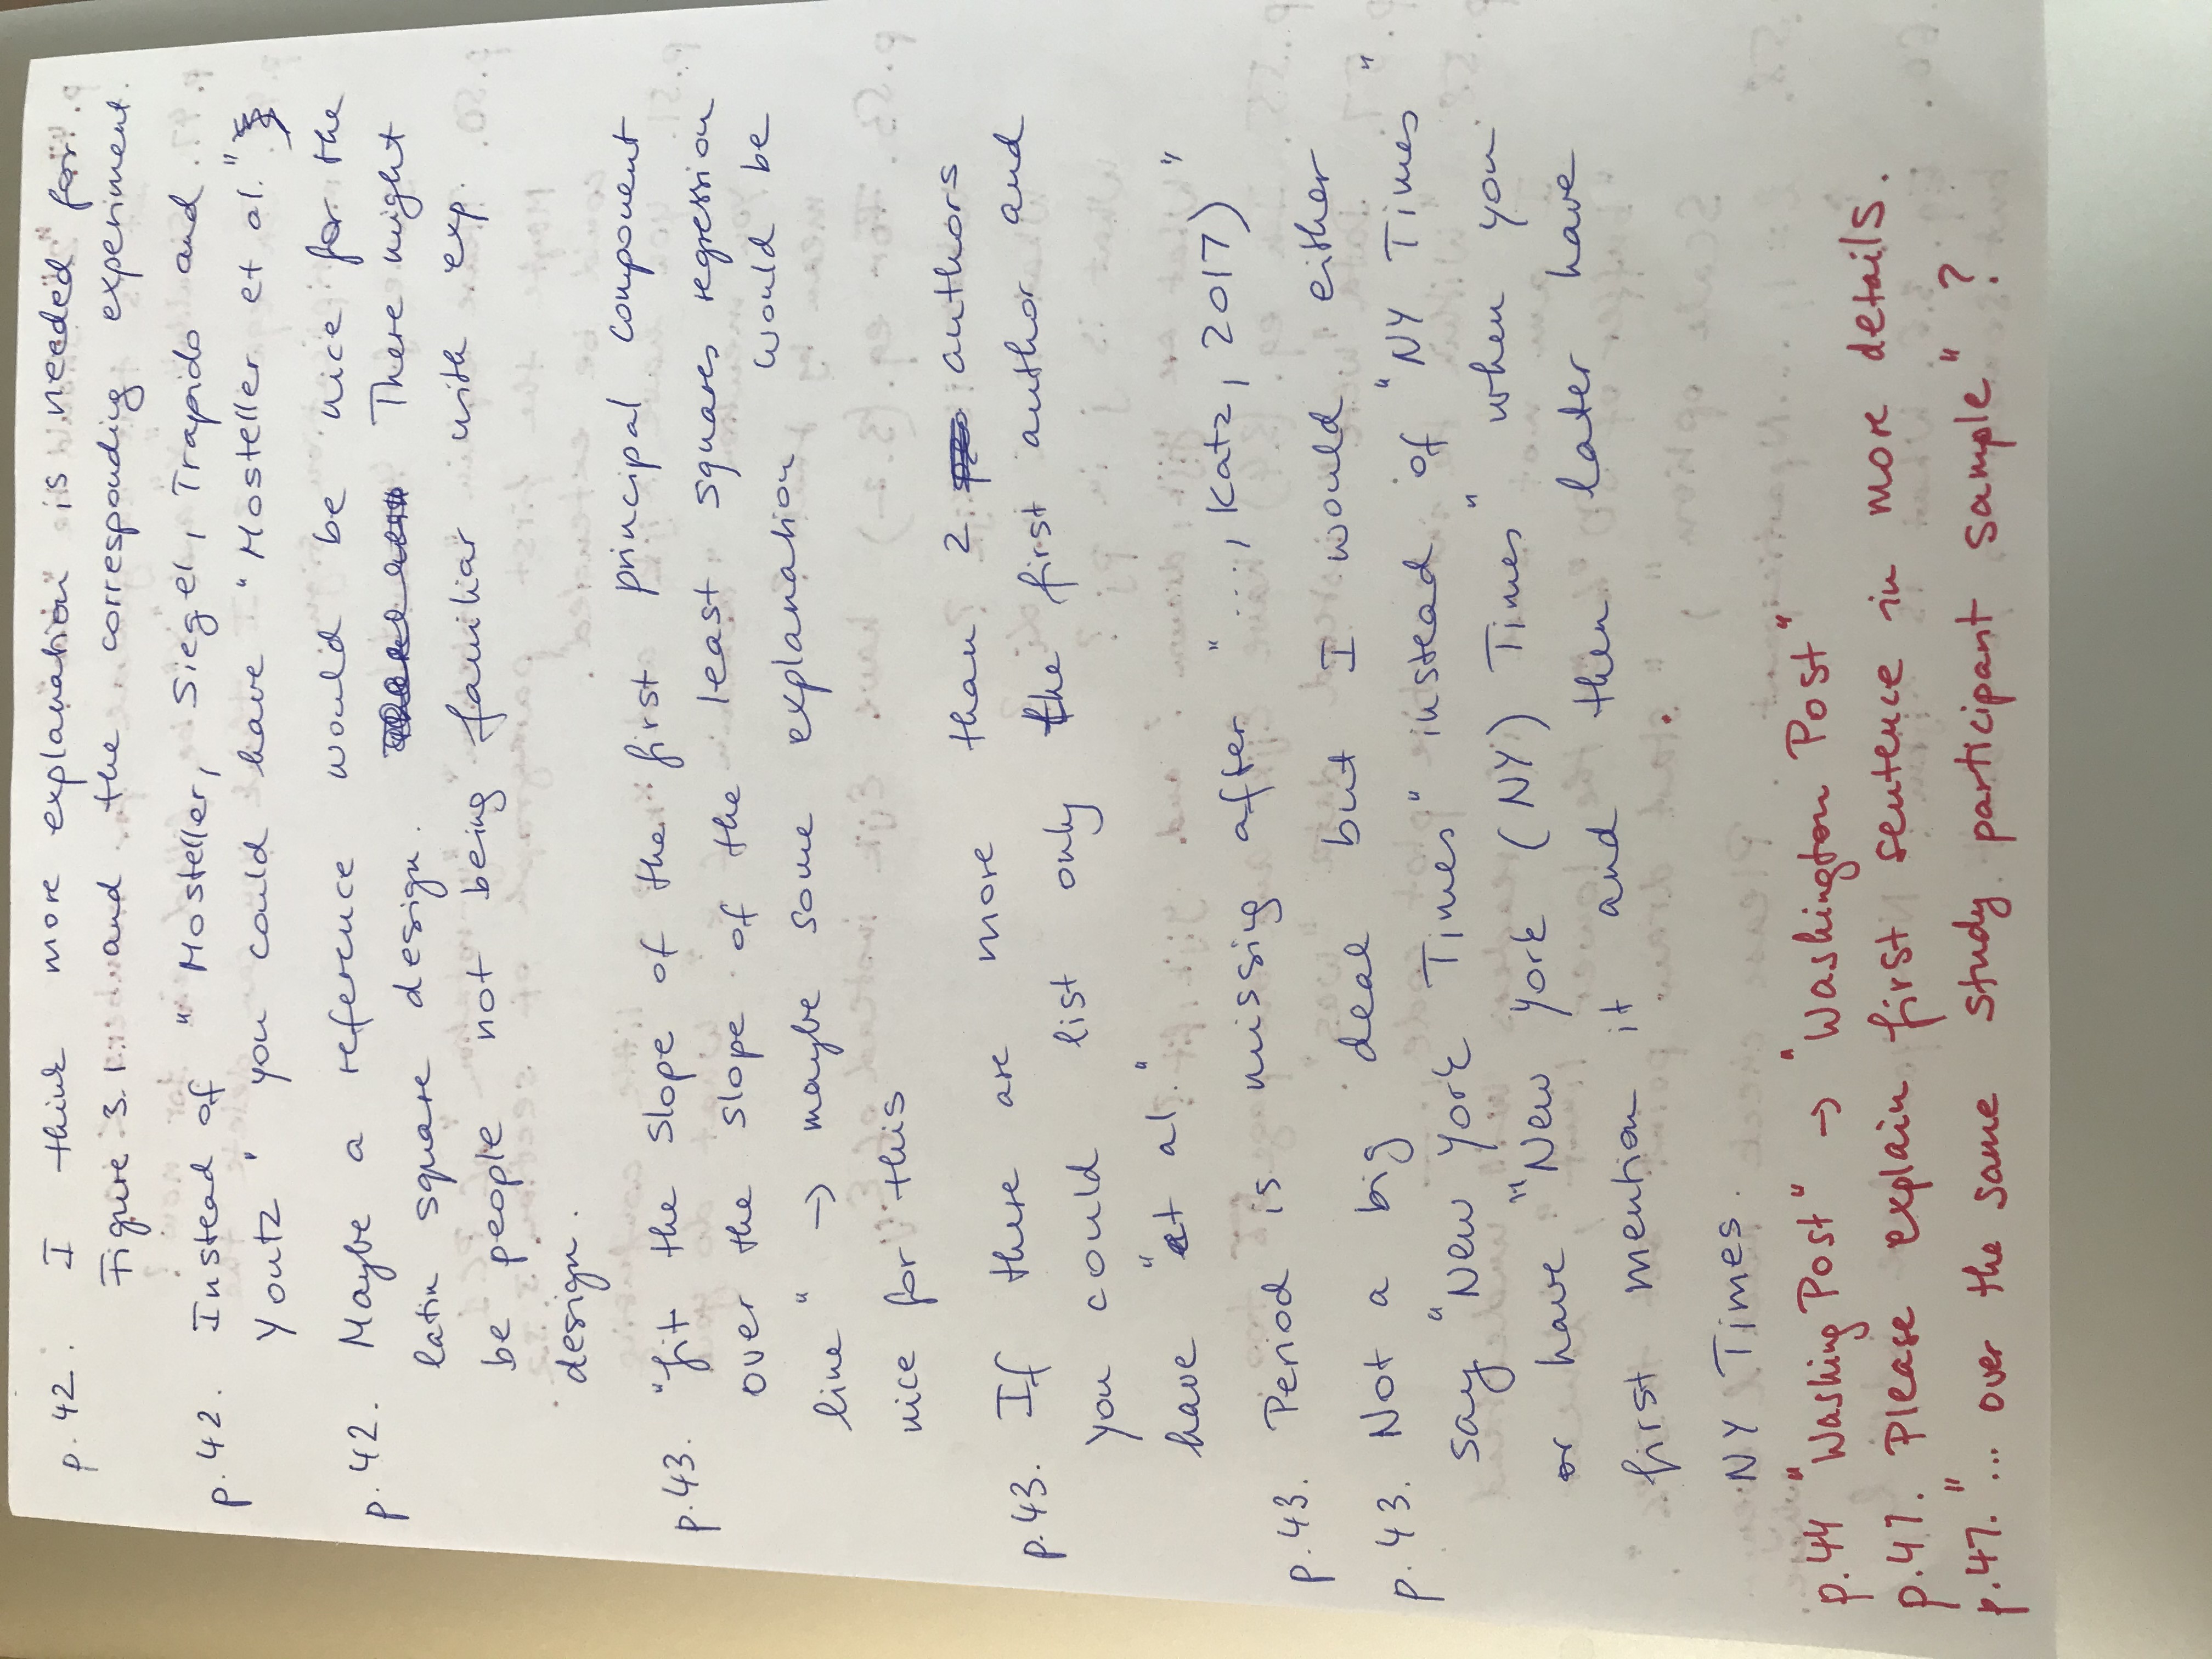 p.42. I think more explanation is needed for
Figure 3.1. and the corresponding experiment.
p.42. Instead of "Mosteller, Siegel, Trapido and
Youtz" you could have "Mosteller et al."
p.42. Maybe a reference would be nice for the
latin square design. There might
be people not being familiar with exp.
design.
p.43. "fit the slope of the first principal component
over the slope of the least squares regression
line" → maybe some explanation would be
nice for this
p.43. If there are more than 2 authors
you could list only the first author and
have "et al."
p.43. Period is missing after "..., Katz, 2017)"
p.43. Not a big deal but I would either
say "New York Times" instead of "NY Times"
or have "New York (NY) Times" when you
first mention it and then later have
NY Times.
p.44 "Washing Post" → "Washington Post"
p.47. Please explain first sentence in more details.
p.47. "... over the same study participant sample" ?